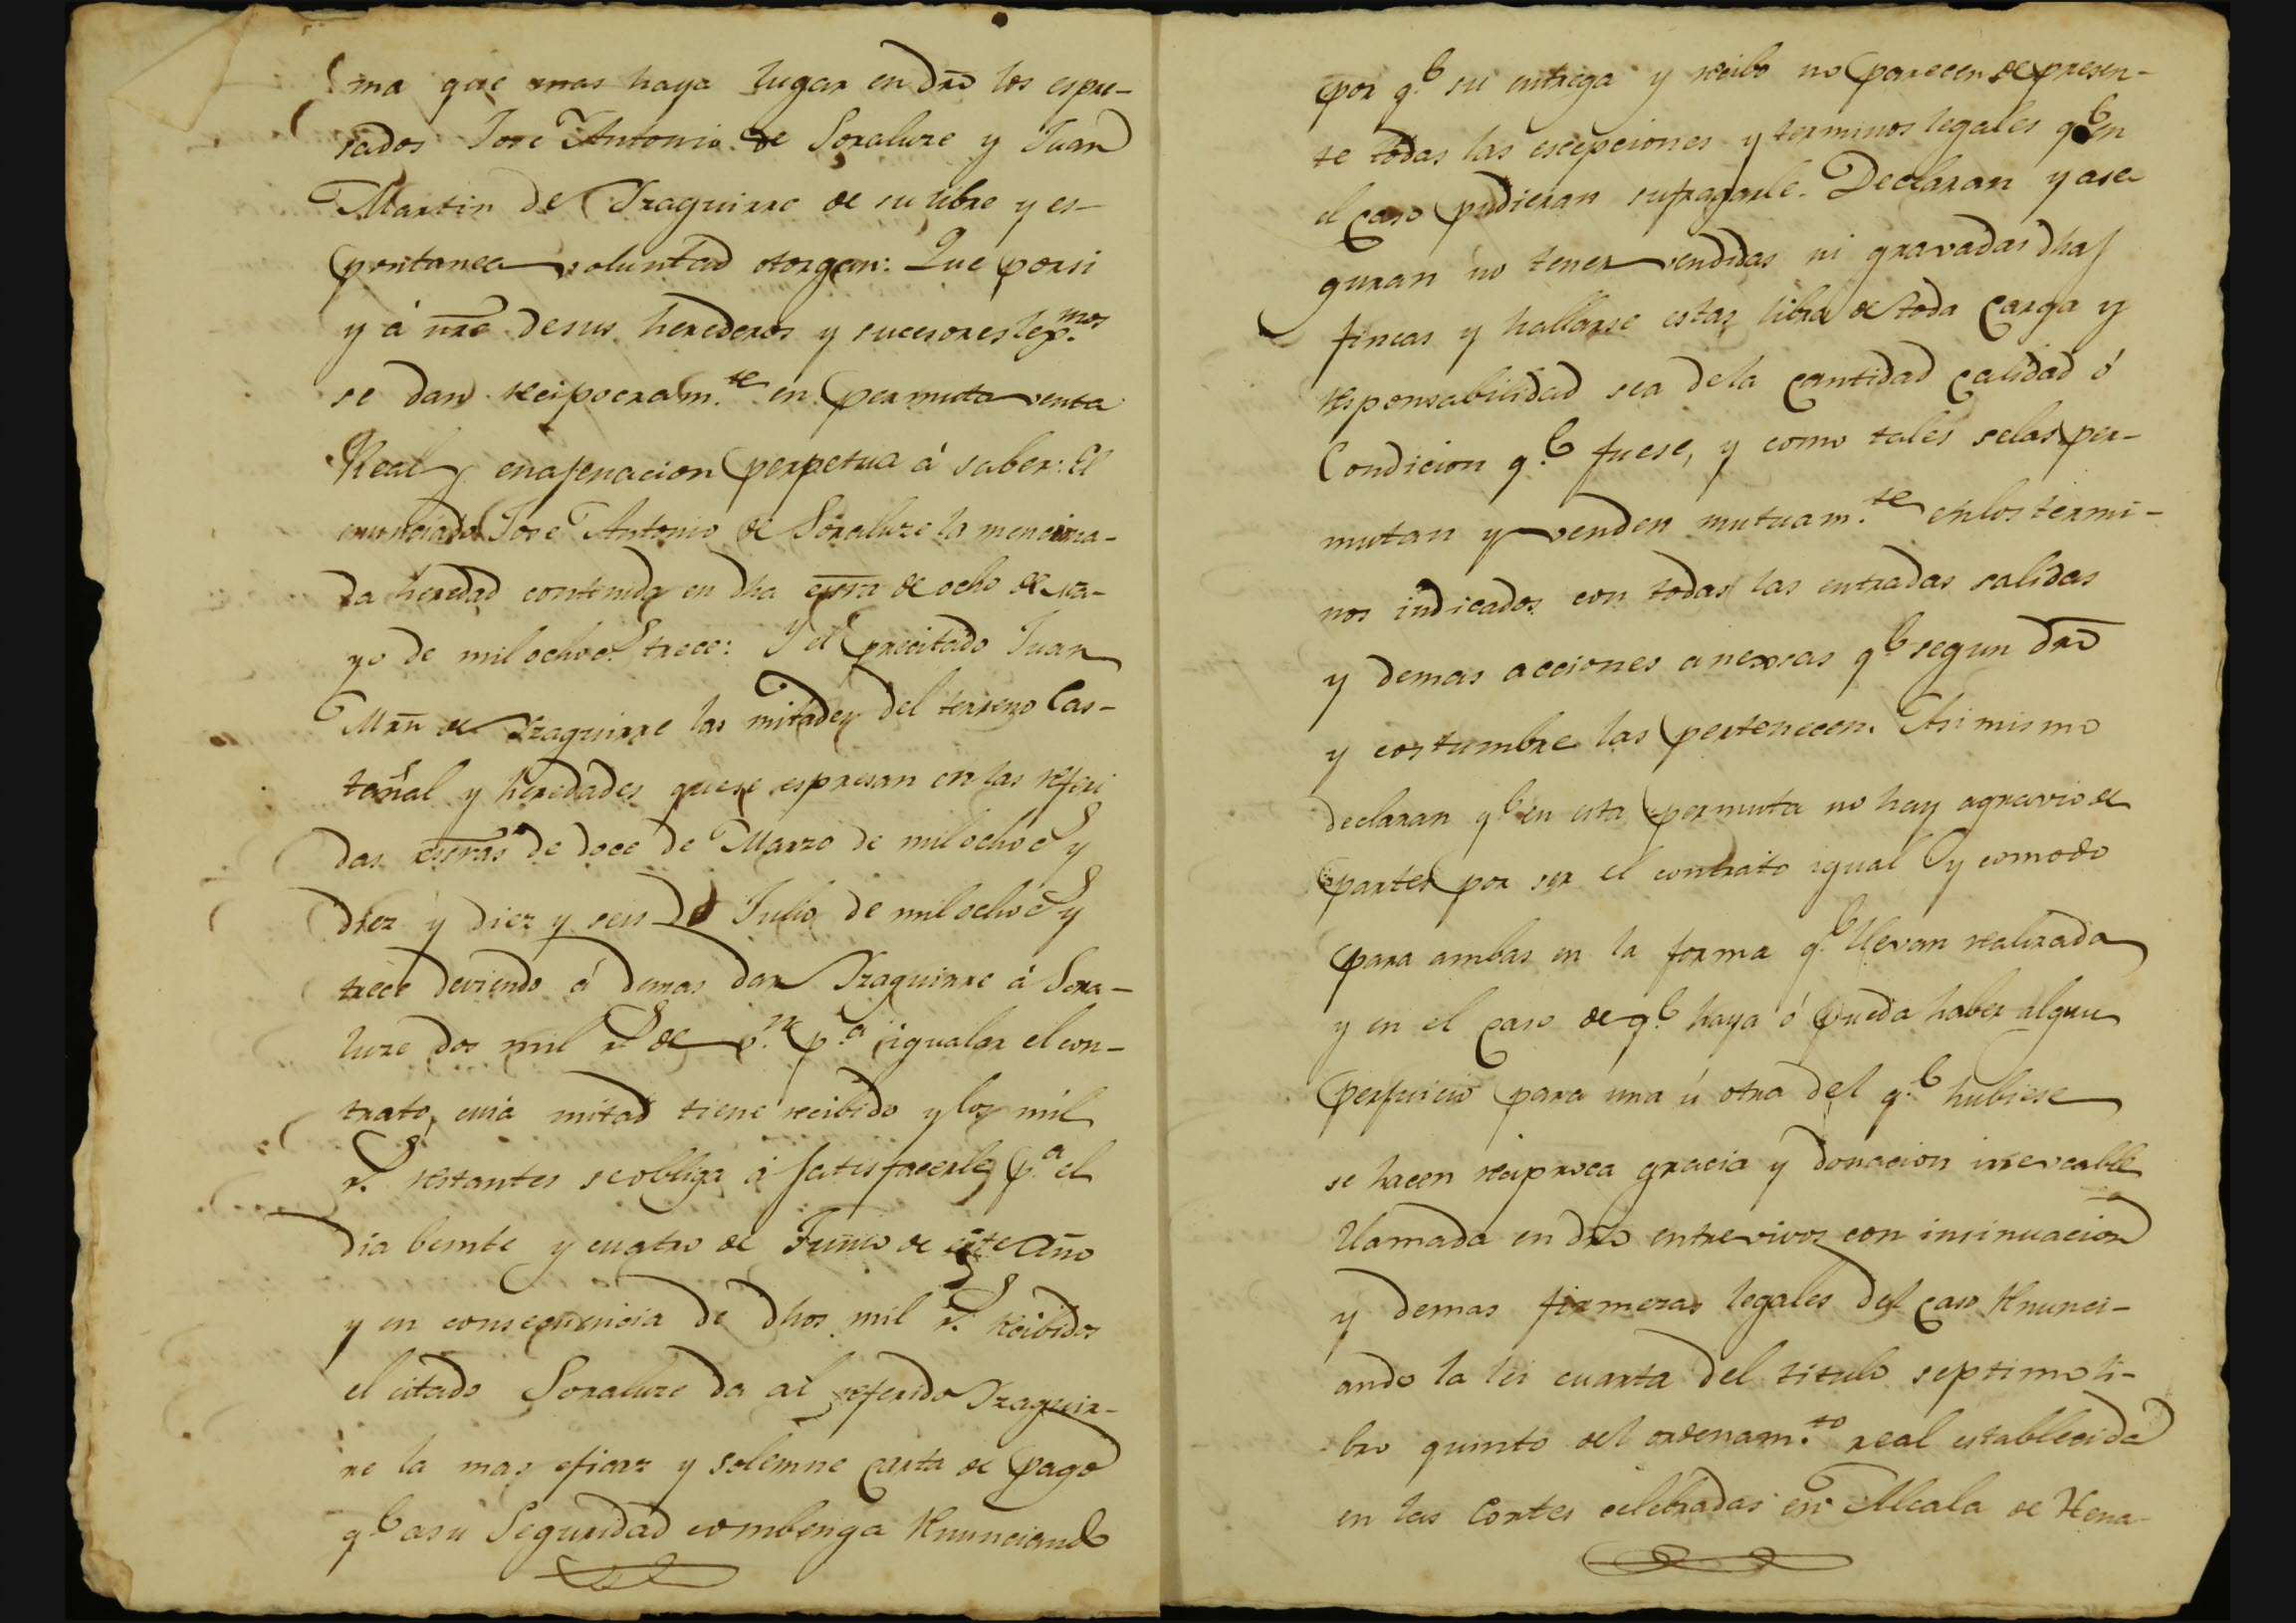 ma que mas haya lugar en dro los espre-
sados Jose Antonio de Soraluze y Juan
Martin de Yzaguirre de su libre y es-
pontanea voluntad otorgan: Que porsi
y á nre desus herederos y sucesores lex.mos
se dan recipocram.te en permuta venta
Real y enajenacion perpetua á saber: El
enunciado Jose Antonio de Soraluze la menciona-
da heredad contenida en dha esra de ocho de ma-
yo de mil ochocs. trece: Y el precitado Juan
Mrn de Yzaguirre las mitades del terreno Cas-
tañal y heredades que se espresan en las referi
das esras de doce de Marzo de mil ochocs y
diez y diez y seis de Julio de mil ochocs y
trece deviendo á demas dar Yzaguirre á Sora-
luze dos mil rs. de v.n p.a igualar el con-
trato, cuia mitad tiene recibido y los mil
rs. restantes se obliga á satisfacerle p.a el
dia beinte y cuatro de Junio de este año
y en consequencia de dhos mil rs. recibidos
el citado Soraluze da al referido Yzaguir-
re la mas eficaz y solemne carta de pago
q.e asu Seguridad combenga renunciando
por q.e su entrega y recibo no parecen de presen-
te todas las escepciones y terminos legales q.e en
el caso pudieran sufragarle. Declaran y ase
guran no tener vendidas ni gravadas dhas
fincas y hallarse estas libra de toda Carga y
responsabilidad sea dela cantidad calidad ó
Condicion q.e fuese, y como tales selas per-
mutan y venden mutuam.te enlos termi-
nos indicados con todas las entradas salidas
y demas acciones anexsas q.e segun dro
y costumbre las pertenecen. Asi mismo
declaran q.e en esta permuta no hay agravio de
partes por ser el contrato igual y comodo
para ambas en la forma q.e llevan realizada
y en el caso de q.e haya ó pueda haber algun
perjuicio para una ú otra del q.e hubiese
se hacen reciproca gracia y donacion irrevocable
llamada en dro entrevivos con insinuacion
y demas firmezas legales del caso renunci-
ando la lei cuarta del titulo septimo li-
bro quinto del ordenam.to real establecida
en las Cortes celebradas en Alcala de Hena-